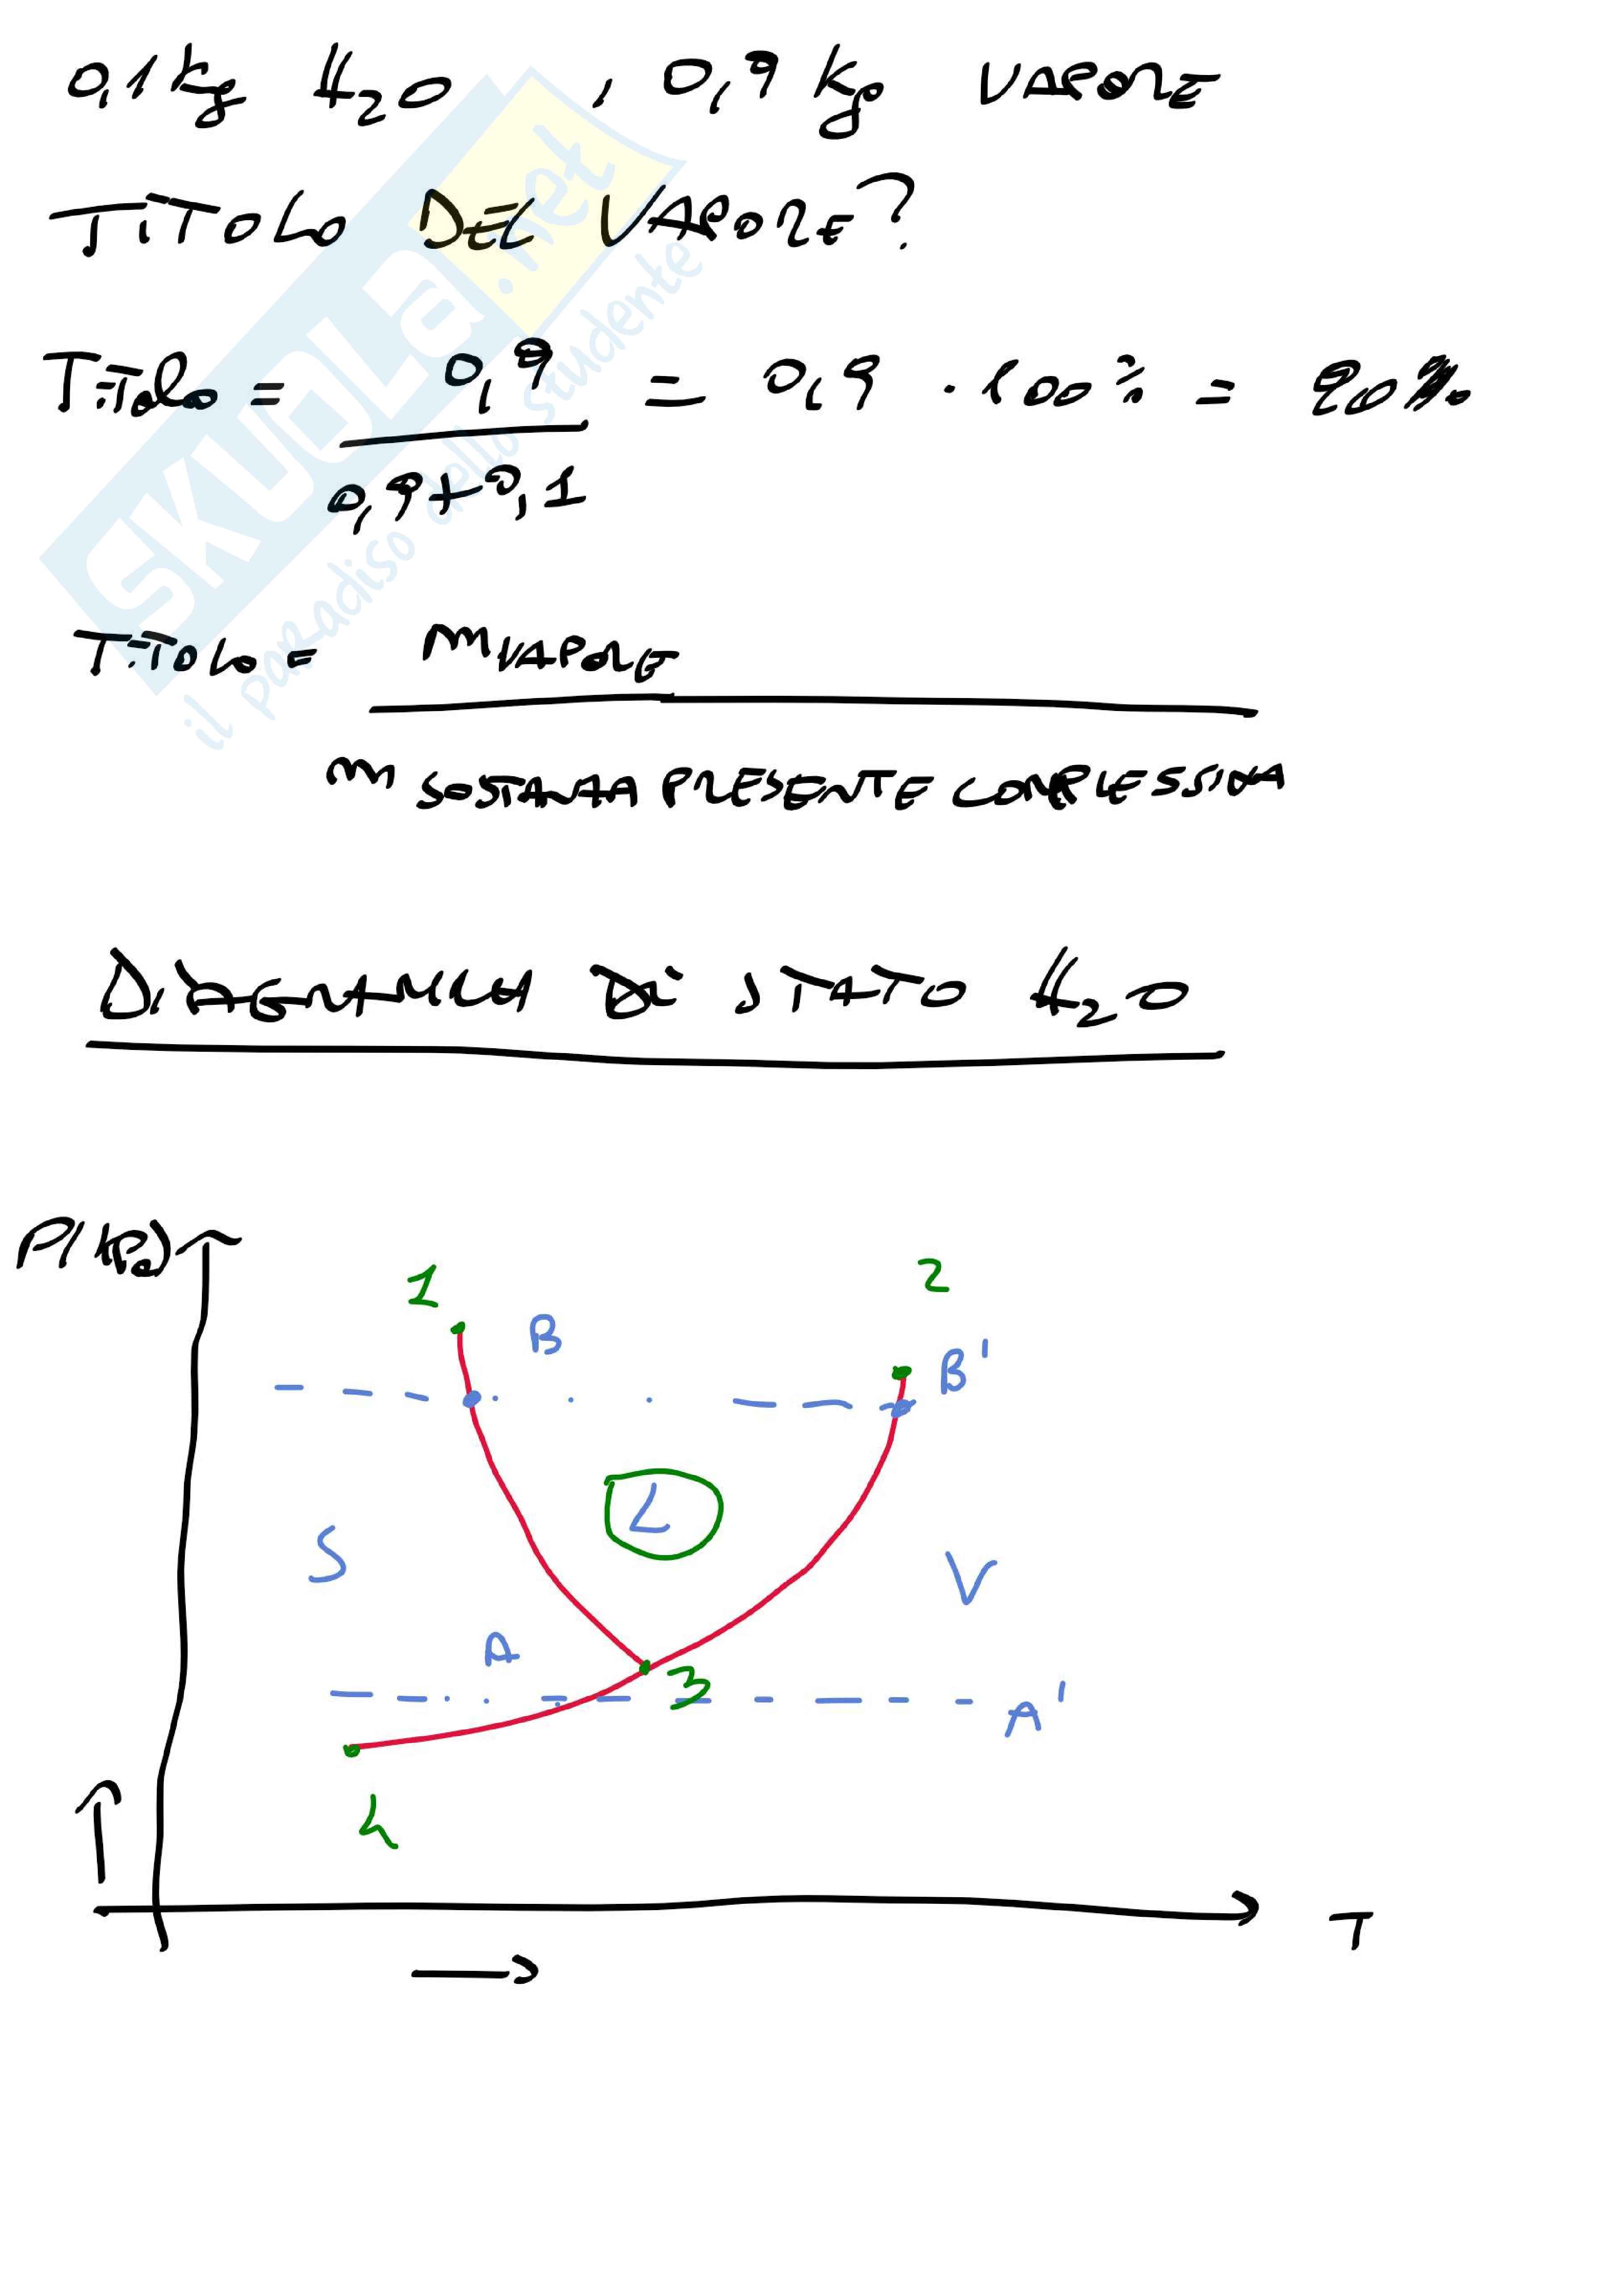 0,1 kg H2O , 0,9 kg VAPORE
TITOLO DEL VAPORE?
Titolo = 0,9 / 0,9+0,1 = 0,9 · 100% = 90%
TITOLO = m VAPORE
m SOSTANZA PRESENTE COMPLESSIVA
DIAGRAMMA DI STATO H2O
P(kPa)
1 2
B B'
L
S V
A
3
A'
4
T
SKUOLA.net
il paradiso dello studente